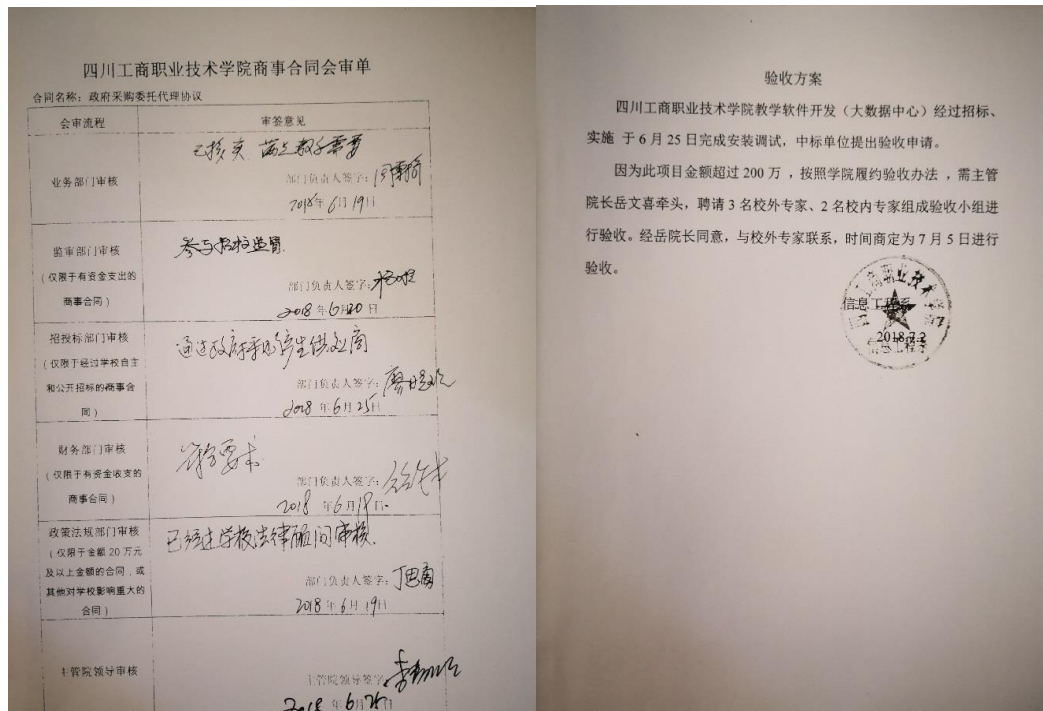 四川工商职业技术学院商事合同会审单
合同名称：政府采购委托代理协议
会审流程
审签意见
业务部门审核
已核实 满足教学需要
部门负责人签字：
2018年6月19日
监审部门审核
（仅限于有资金支出的
商事合同）
参与招投监督
部门负责人签字：
2018年6月20日
招投标部门审核
（仅限于经过学校自主
和公开招标的商事合
同）
通过政府采购产生供应商
部门负责人签字：
2018年6月25日
财务部门审核
（仅限于有资金收支的
商事合同）
部门负责人签字：
2018年6月19日
政策法规部门审核
（仅限于金额20万元
及以上金额的合同，或
其他对学校影响重大的
合同）
已经过学校法律顾问审核
部门负责人签字：丁思勇
2018年6月19日
主管院领导审核
主管院领导签字：
2018年6月25日
验收方案
四川工商职业技术学院教学软件开发（大数据中心）经过招标、
实施 于6月25日完成安装调试，中标单位提出验收申请。
因为此项目金额超过200万，按照学院履约验收办法，需主管
院长岳文喜牵头，聘请3名校外专家、2名校内专家组成验收小组进
行验收。经岳院长同意，与校外专家联系，时间商定为7月5日进行
验收。
四川工商职业技术学院
信息工程系
2018.7.2
信息工程系